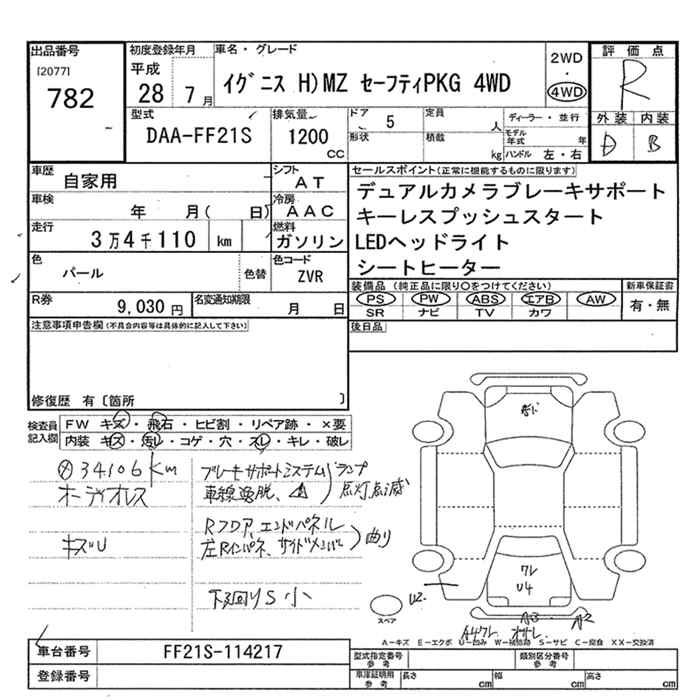 出品番号
[2077]
782
初度登録年月
平成
28 7月
車名・グレード
イグニス H)MZ セーフティPKG 4WD
2WD
・
4WD
評価点
R
外装 内装
D B
型式
DAA-FF21S
排気量
1200
CC
ドア 5
形状
定員 人
積載 kg
ディーラー・並行
モデル年式 年
ハンドル 左・右
車歴 自家用
シフト AT
車検 年 月( 日)
冷房 AAC
走行 3万4千110 km
燃料 ガソリン
色 パール
色替
色コード ZVR
R券 9,030円
名変通知期限 月 日
セールスポイント(正常に機能するものに限ります)
デュアルカメラブレーキサポート
キーレスプッシュスタート
LEDヘッドライト
シートヒーター
装備品(純正品に限り○をつけてください)
PS PW ABS エアB AW
SR ナビ TV カワ
新車保証書
有・無
後日品
注意事項申告欄(不具合内容等は具体的に記入して下さい)
修復歴 有〔箇所 〕
検査員記入欄
FW キズ・飛石・ヒビ割・リペア跡・×要
内装 キズ・汚レ・コゲ・穴・スレ・キレ・破レ
34106km
オーディオレス
キズU
ブレーキサポートシステム
車線逸脱、
ランプ
点灯点滅
Rフロア、エンドパネル
左Rインパネ、サイドメンバー
曲り
下廻りS小
ワレ
U4
U2
スペア
A3
A2
A4ワレ
A-キズ E-エクボ U-凹み W-補修跡 S-サビ C-腐食 XX-交換済
車台番号 FF21S-114217
登録番号
型式指定番号 参考
類別区分番号 参考
車庫証明用 参考
長さ cm
幅 cm
高さ cm